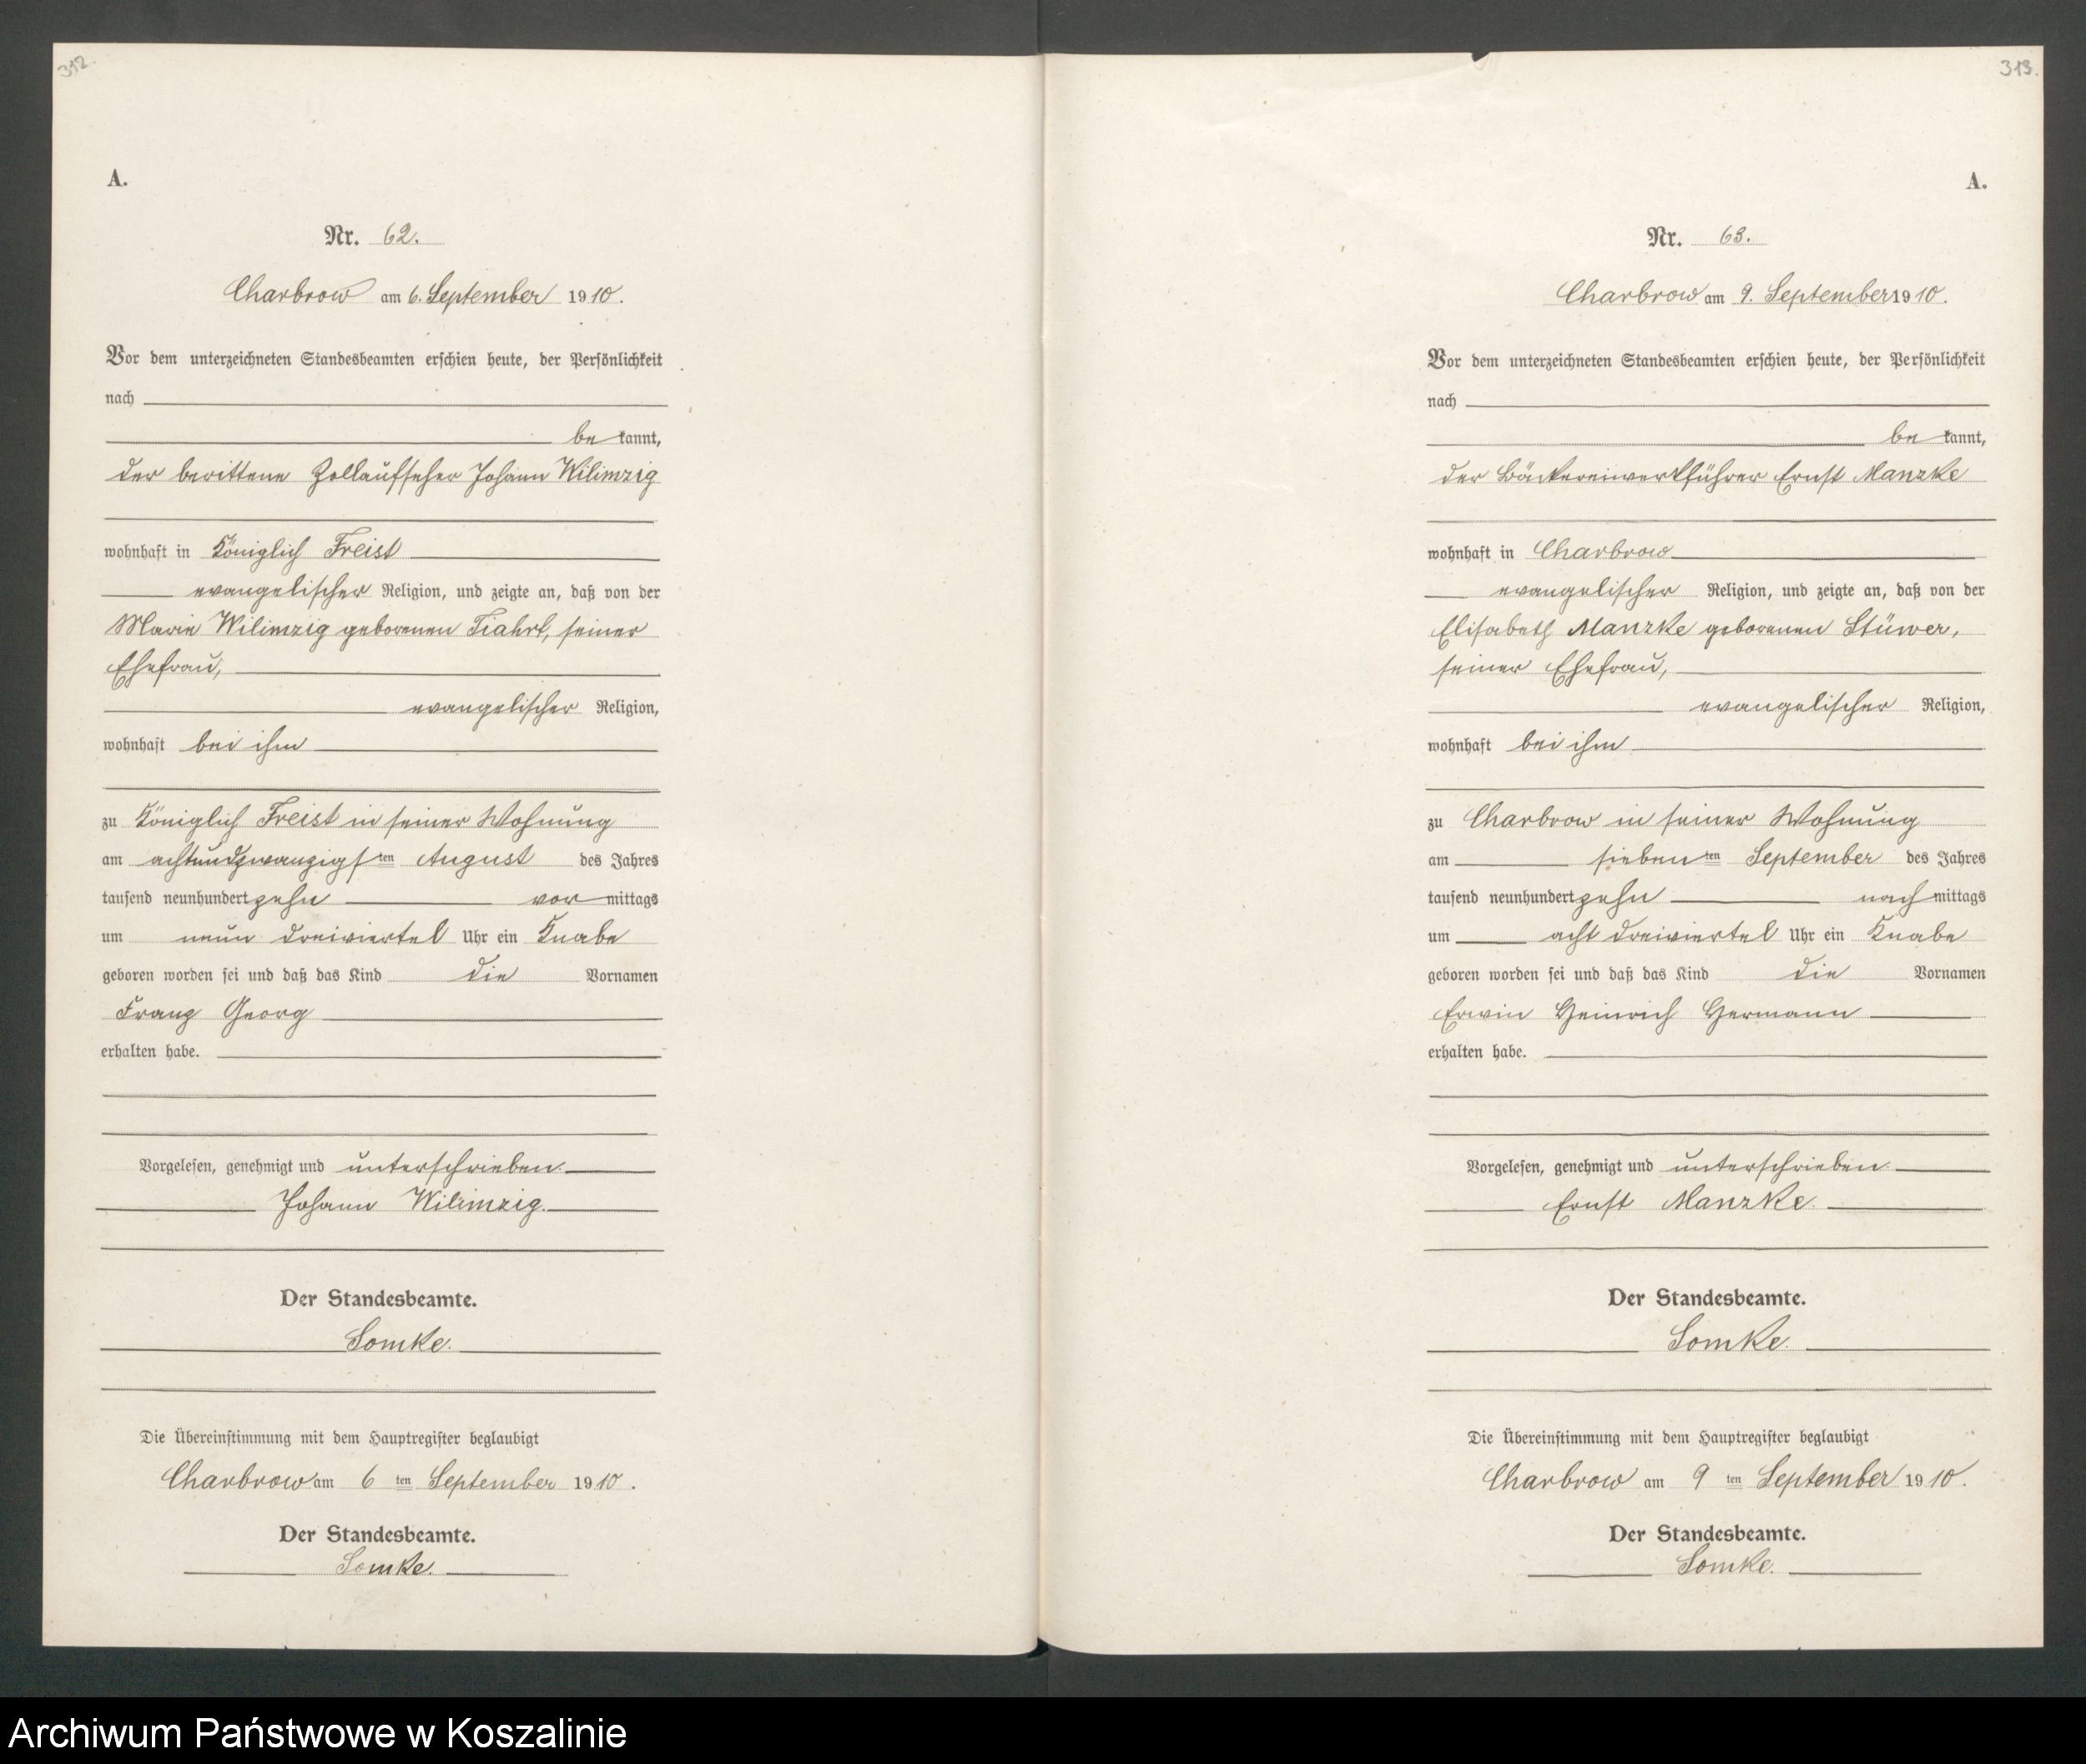 312.
A.
Nr. 62.
Charbrow am 6. September 1910.
Vor dem unterzeichneten Standesbeamten erschien heute, der Persönlichkeit
nach
be kannt,
der berittene Zollaufseher Johann Wilimzig
wohnhaft in Königlich Freist
evangelischer Religion, und zeigte an, daß von der
Marie Wilimzig geborenen Fiahrt, seiner
Ehefrau,
evangelischer Religion,
wohnhaft bei ihm
zu Königlich Freist in seiner Wohnung
am achtundzwanzigsten August des Jahres
tausend neunhundertzehn vormittags
um neun dreiviertel Uhr ein Knabe
geboren worden sei und daß das Kind die Vornamen
Franz Georg
erhalten habe.
Vorgelesen, genehmigt und unterschrieben.
Johann Wilimzig.
Der Standesbeamte.
Somke.
Die Übereinstimmung mit dem Hauptregister beglaubigt
Charbrow am 6 ten September 1910.
Der Standesbeamte.
Somke.
313.
A.
Nr. 63.
Charbrow am 9. September 1910.
Vor dem unterzeichneten Standesbeamten erschien heute, der Persönlichkeit
nach
be kannt,
der Bäckereiwerkführer Ernst Manzke
wohnhaft in Charbrow
evangelischer Religion, und zeigte an, daß von der
Elisabeth Manzke geborenen Stüwer,
seiner Ehefrau,
evangelischer Religion,
wohnhaft bei ihm
zu Charbrow in seiner Wohnung
am siebenten September des Jahres
tausend neunhundertzehn nachmittags
um acht dreiviertel Uhr ein Knabe
geboren worden sei und daß das Kind die Vornamen
Erwin Heinrich Hermann
erhalten habe.
Vorgelesen, genehmigt und unterschrieben.
Ernst Manzke.
Der Standesbeamte.
Somke.
Die Übereinstimmung mit dem Hauptregister beglaubigt
Charbrow am 9 ten September 1910.
Der Standesbeamte.
Somke.
Archiwum Państwowe w Koszalinie